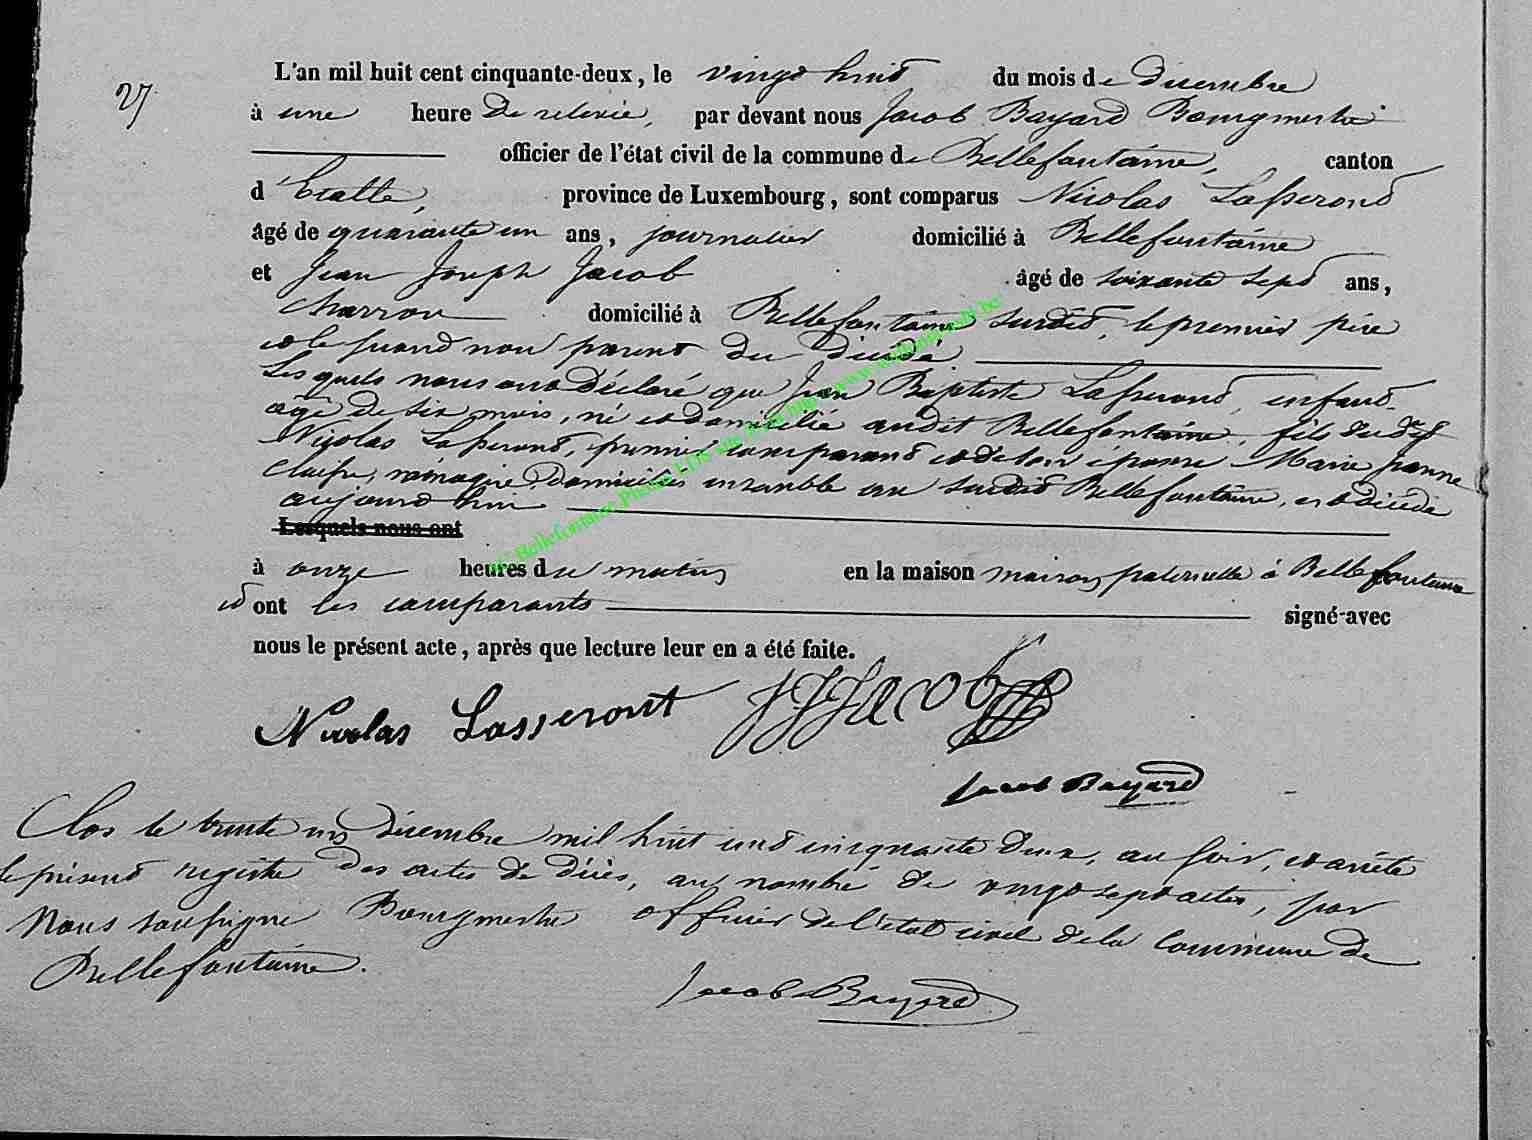 27
L'an mil huit cent cinquante-deux, le vingt huit du mois de decembre
à une heure De relevée, par devant nous Jacob Bayard Bourgmestre
officier de l'état civil de la commune de Bellefontaine, canton
d'Etalle, province de Luxembourg, sont comparus Nicolas Lasseront
âgé de quarante un ans, journalier domicilié à Bellefontaine
et Jean Joseph Jacob âgé de soixante sept ans,
charron domicilié à Bellefontaine susdit, le premier père
et le second non parent du décédé
Les quels nous ont Déclaré que Jean Baptiste Lasseront, enfant
agé de six mois, né et domicilié audit Bellefontaine, fils dudit
Nicolas Lasseront, premier comparant et de son épouse Marie Jeanne
Claisse, ménagère, Domiciliés ensemble au susdit Bellefontaine, est décédé
aujourd'hui
Lesquels nous ont
à onze heures du matin en la maison maison paternelle à Bellefontaine
et ont les comparants signé avec
nous le présent acte, après que lecture leur en a été faite.
Nicolas Lasseront JJJacob
Jacob Bayard
Clos le trente un décembre mil huit cent cinquante deux, au soir, et arrêté
le présent registre des actes de Décès, au nombre de vingt sept actes, par
Nous soussigné Bourgmestre officier de l'état civil de la Commune de
Bellefontaine.
Jacob Bayard